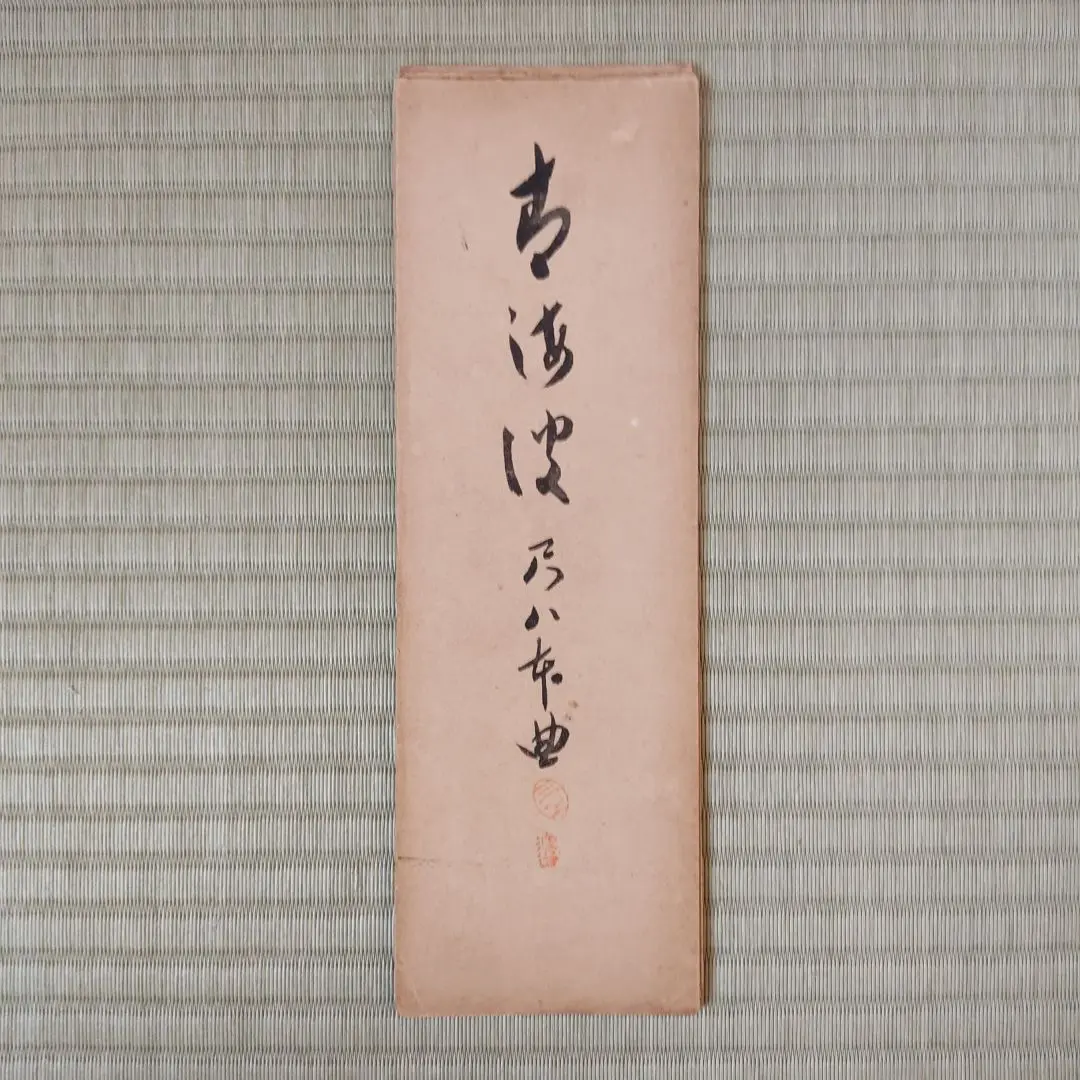 青海波 尺八本曲